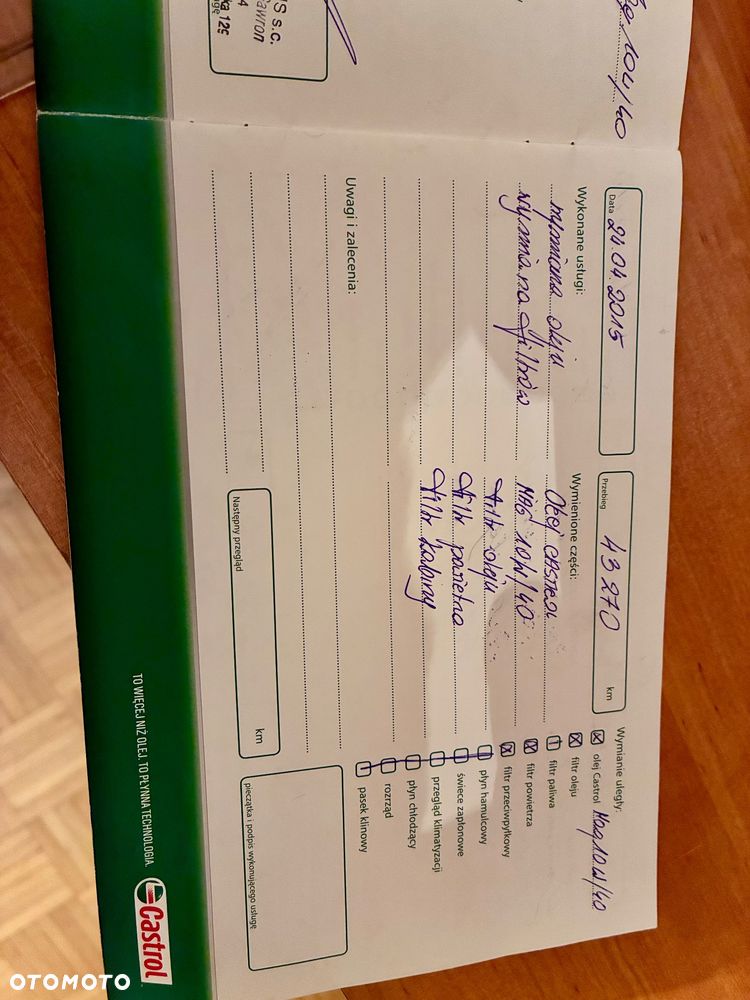 S s.c.
awron
4
ka 125
10W/40
Data 24.04.2015
Przebieg 43 270 km
Wykonane usługi:
wymiana oleju
wymiana filtrów
Wymienione części:
Olej castrol
MAG 10W/40
filtr oleju
filtr powietrza
filtr kabiny
Wymianie uległy:
olej Castrol Mag 10W/40
filtr oleju
filtr paliwa
filtr powietrza
filtr przeciwpyłkowy
płyn hamulcowy
świece zapłonowe
przegląd klimatyzacji
płyn chłodzący
rozrząd
pasek klinowy
Uwagi i zalecenia:
Następny przegląd km
pieczątka i podpis wykonującego usługę
TO WIĘCEJ NIŻ OLEJ. TO PŁYNNA TECHNOLOGIA.
Castrol
OTOMOTO